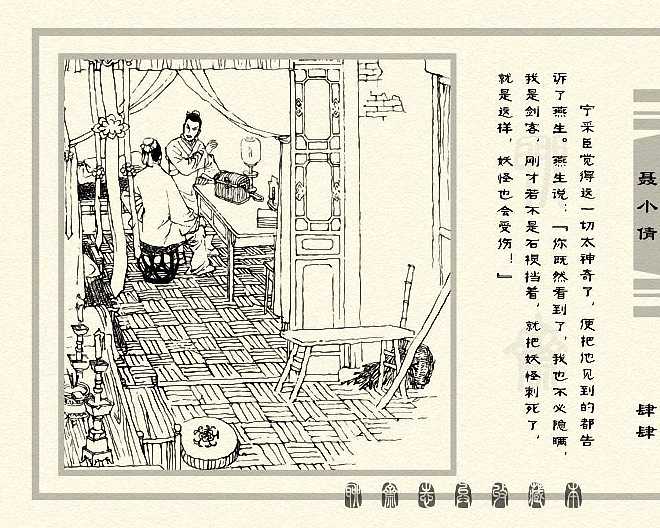 宁采臣觉得这一切太神奇了，便把他见到的都告
诉了燕生。燕生说：“你既然看到了，我也不必隐瞒，
我是剑客，刚才若不是石楔挡着，就把妖怪刺死了，
就是这样，妖怪也会受伤！”
聂小倩
肆肆
聊斋志异收藏本